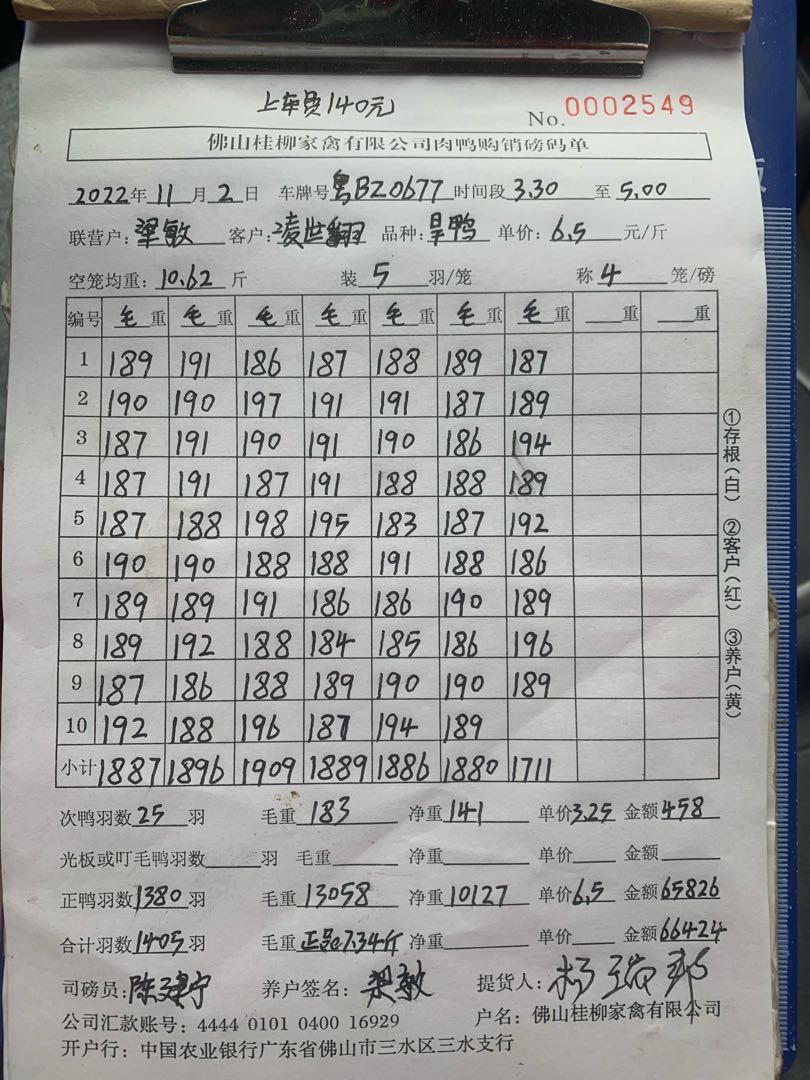 上车员140元
No. 0002549
佛山桂柳家禽有限公司肉鸭购销磅码单
2022年11月2日 车牌号粤BZ0677时间段3.30至5.00
联营户:梁敏 客户:凌世翻 品种:旱鸭 单价:6.5元/斤
空笼均重:10.62斤 装5羽/笼 称4笼/磅
编号 毛重 毛重 毛重 毛重 毛重 毛重 毛重 重 重
1 189 191 186 187 188 189 187
2 190 190 197 191 191 187 189
3 187 191 190 191 190 186 194
4 187 191 187 191 188 188 189
5 187 188 198 195 183 187 192
6 190 190 188 188 191 188 186
7 189 189 191 186 186 190 189
8 189 192 188 184 185 186 196
9 187 186 188 189 190 190 189
10 192 188 196 187 194 189
小计 1887 1896 1909 1889 1886 1880 1711
次鸭羽数25羽 毛重183 净重141 单价3.25 金额458
光板或叮毛鸭羽数羽 毛重 净重 单价 金额
正鸭羽数1380羽 毛重13058 净重10127 单价6.5 金额65826
合计羽数1405羽 毛重正品7.34斤 净重 单价 金额66424
司磅员:陈建宁 养户签名:梁敏 提货人:杨瑞邦
公司汇款账号:4444 0101 0400 16929 户名:佛山桂柳家禽有限公司
开户行:中国农业银行广东省佛山市三水区三水支行
①存根(白) ②客户(红) ③养户(黄)